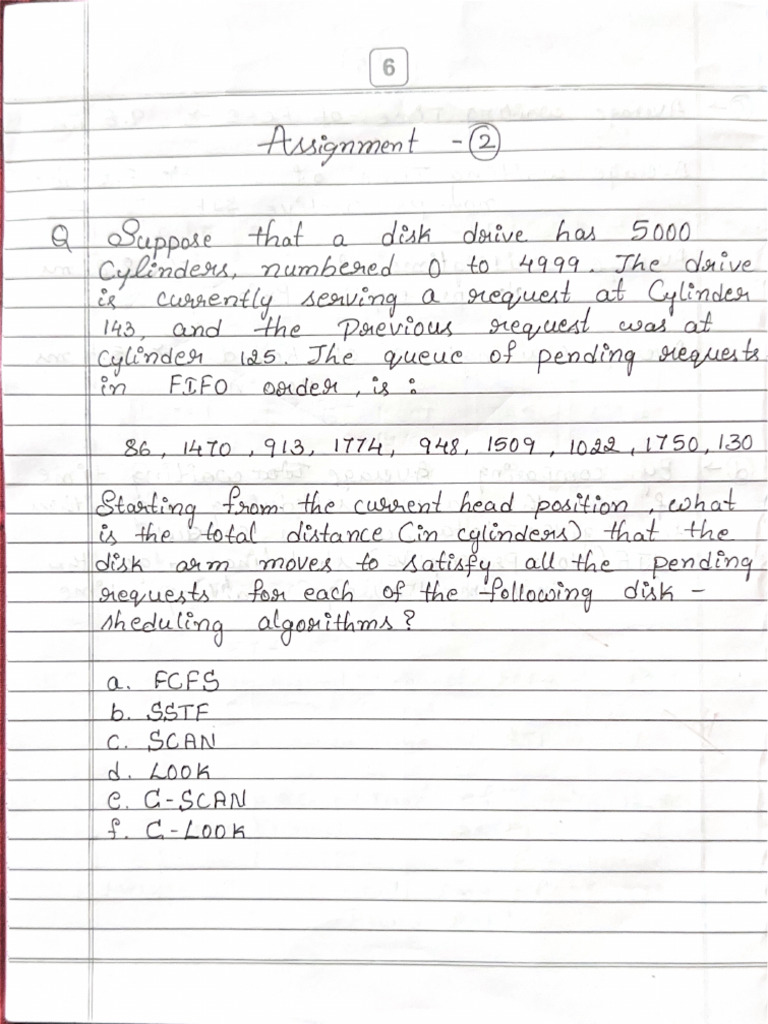 6
Assignment - 2
Q Suppose that a disk drive has 5000
Cylinders, numbered 0 to 4999. The drive
is currently serving a request at Cylinder
143, and the previous request was at
cylinder 125. The queue of pending requests
in FIFO order, is :
86, 1470, 913, 1774, 948, 1509, 1022, 1750, 130
Starting from the current head position, what
is the total distance (in cylinders) that the
disk arm moves to satisfy all the pending
requests for each of the following disk -
sheduling algorithms?
a. FCFS
b. SSTF
c. SCAN
d. LOOK
e. C-SCAN
f. C-LOOK